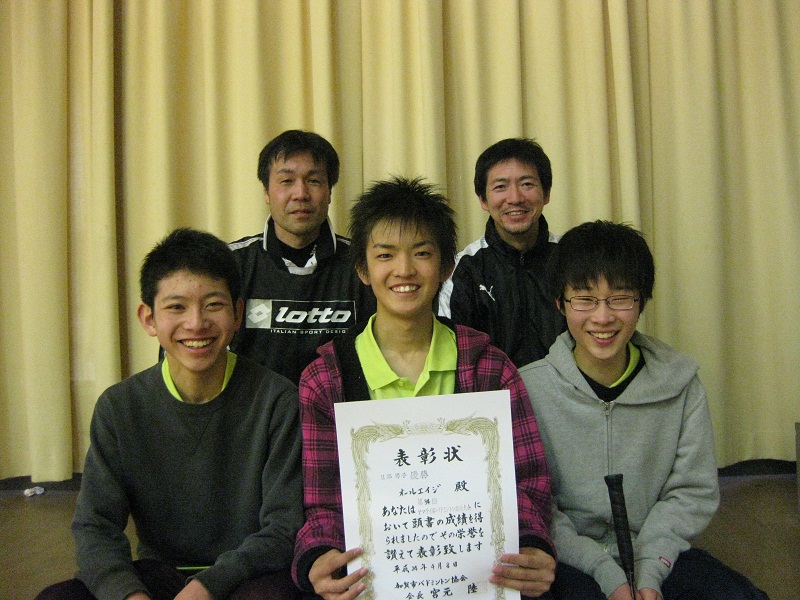 lotto
ITALIAN SPORT DESIG
表彰状
優勝
オールエイジ 殿
あなたは
おいて頭書の成績を得
られましたのでその栄誉を
讃えて表彰致します
加賀市バドミントン協会
会長 宮元 陸